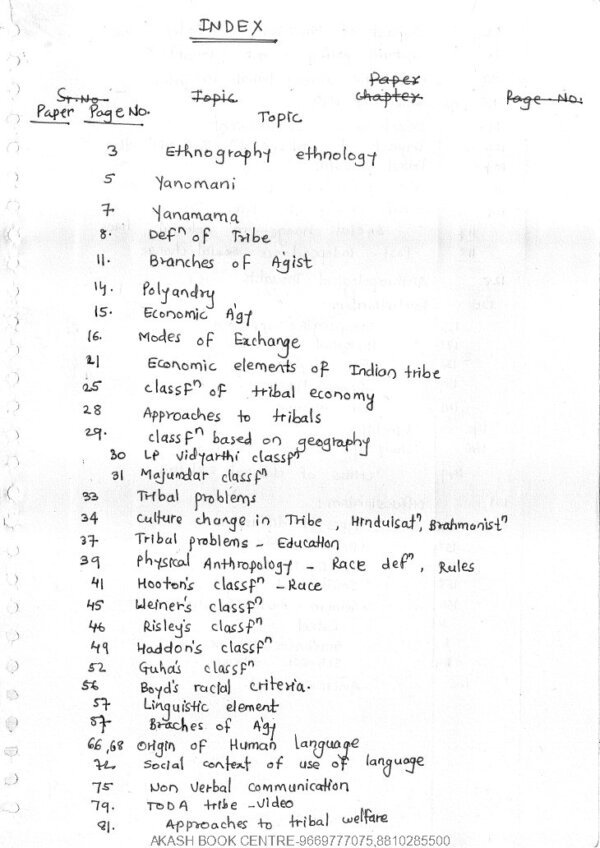 INDEX
Paper
Sr.No. Topic Chapter Page No.
Paper Page No. Topic
3 Ethnography ethnology
5 Yanomani
7 Yanamama
8. Defⁿ of Tribe
11. Branches of A'gist
14. Polyandry
15. Economic A'gy
16. Modes of Exchange
21 Economic elements of Indian tribe
25 classfⁿ of tribal economy
28 Approaches to tribals
29. classfⁿ based on geography
30 LP Vidyarthi classfⁿ
31 Majundar classfⁿ
33 Tribal problems
34 Culture change in Tribe, Hinduisatⁿ, Brahmonistⁿ
37 Tribal problems - Education
39 Physical Anthropology - Race defⁿ, Rules
41 Hooton's classfⁿ - Race
45 Weiner's classfⁿ
46 Risley's classfⁿ
49 Haddon's classfⁿ
52 Guha's classfⁿ
56 Boyd's racial criteria.
57 Linguistic element
57 Braches of A'gy
66,68 Origin of Human language
Social context of use of language
75 Non Verbal communication
79. TODA tribe - Video
81. Approaches to tribal welfare
AKASH BOOK CENTRE-9669777075,8810285500